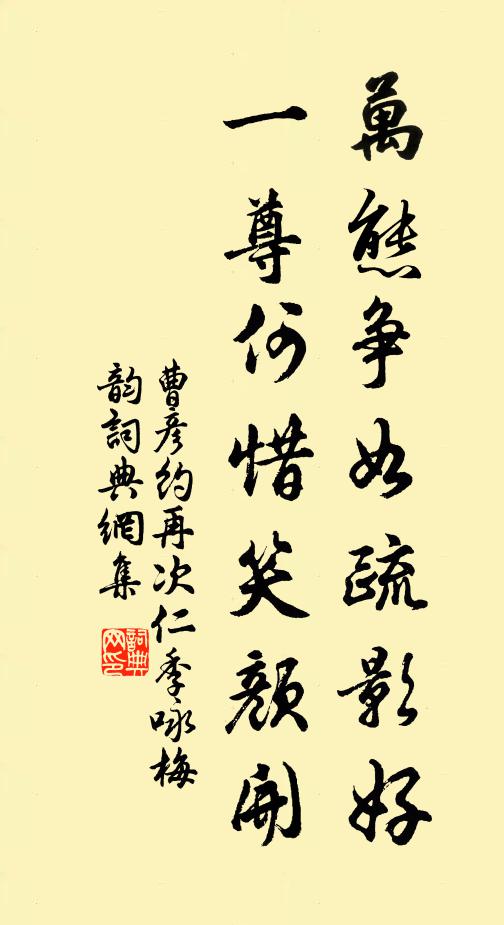 萬態争如疏影好
一尊何惜笑顔開
曹彦約再次仁季咏梅
韵詞典網集
詞典网印